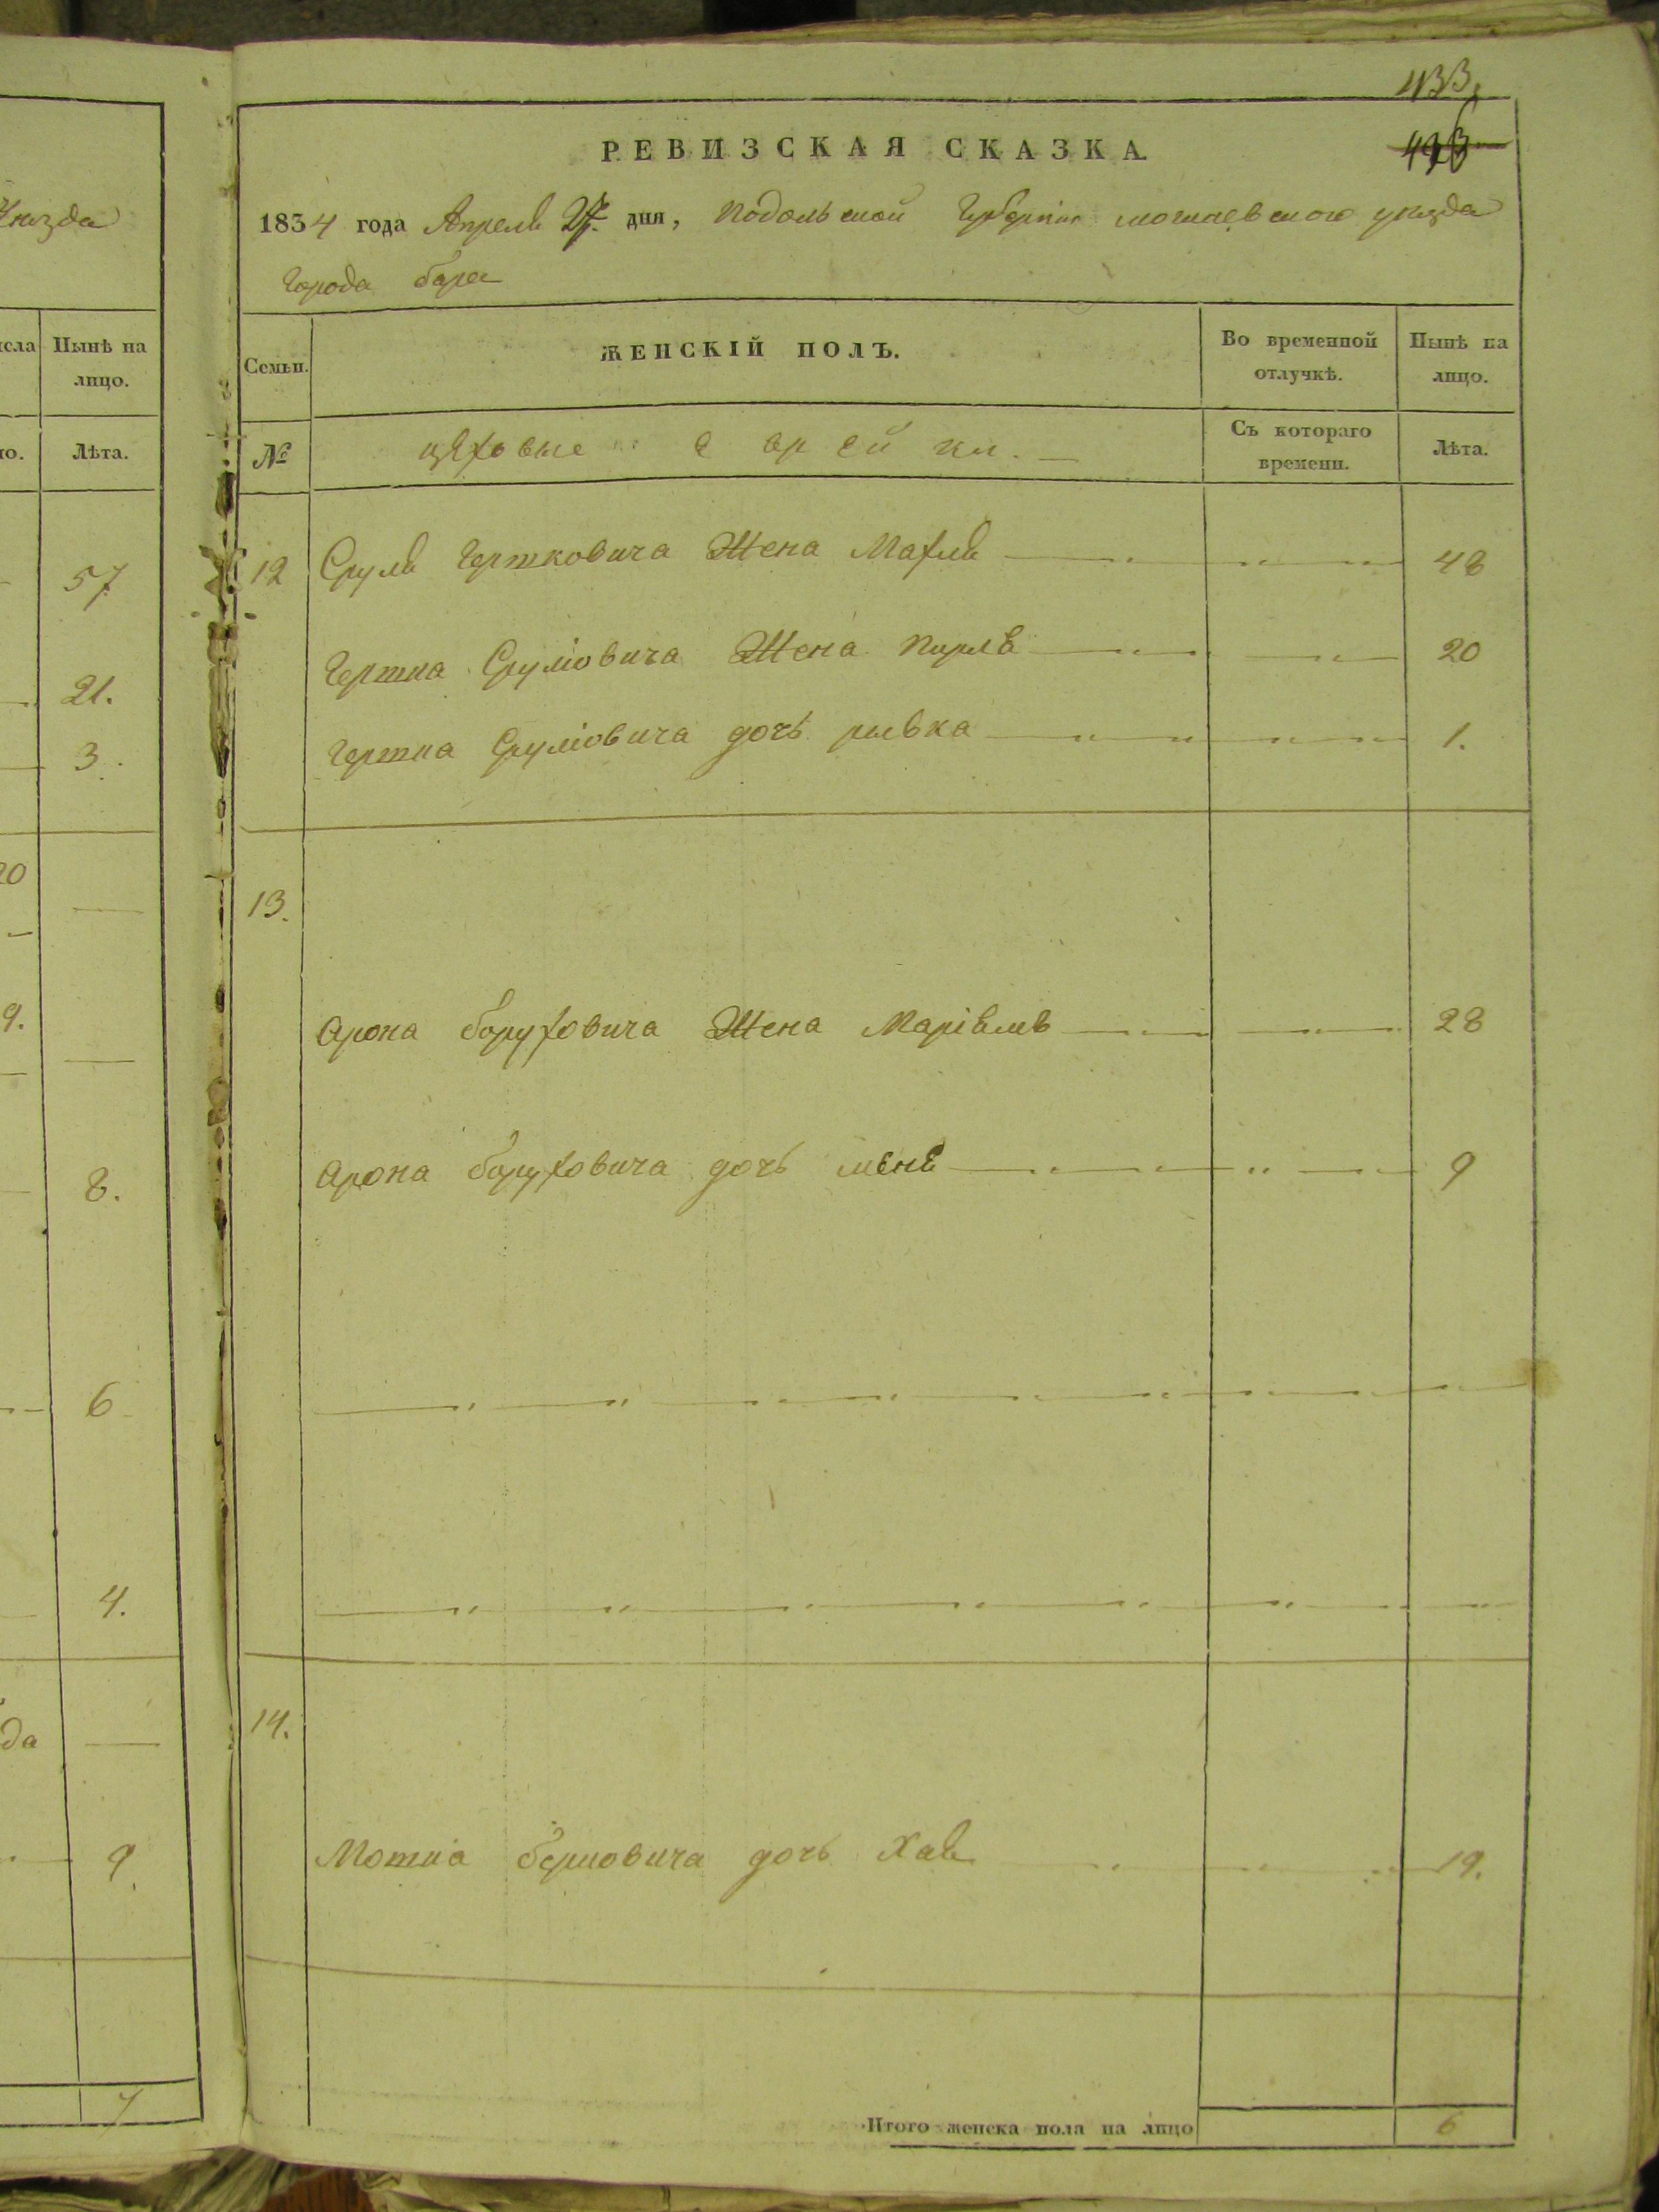 уѣзда
Нынѣ на
лицо.
Лѣта.
57
21.
3.
20
9.
8.
6
4.
да
9.
7
433
РЕВИЗСКАЯ СКАЗКА.
1834 года Апреля дня, Подольской Губерніи могилевского уѣзда
города бара
Семьи. ЖЕНСКІЙ ПОЛЪ. Во временной отлучкѣ. Нынѣ на лицо.
№ цѣховые еврейки. Съ котораго времени. Лѣта.
12 Сруля Гершковича Жена Махля 48
Гершка Срулiовича Жена Перля 20
Гершка Срулiовича дочь ривка 1.
13.
Арона боруховича Жена Марiямъ 28
Арона боруховича дочь 9
14.
Мотiа берковича дочь Хая 19.
Итого женска пола на лицо 6